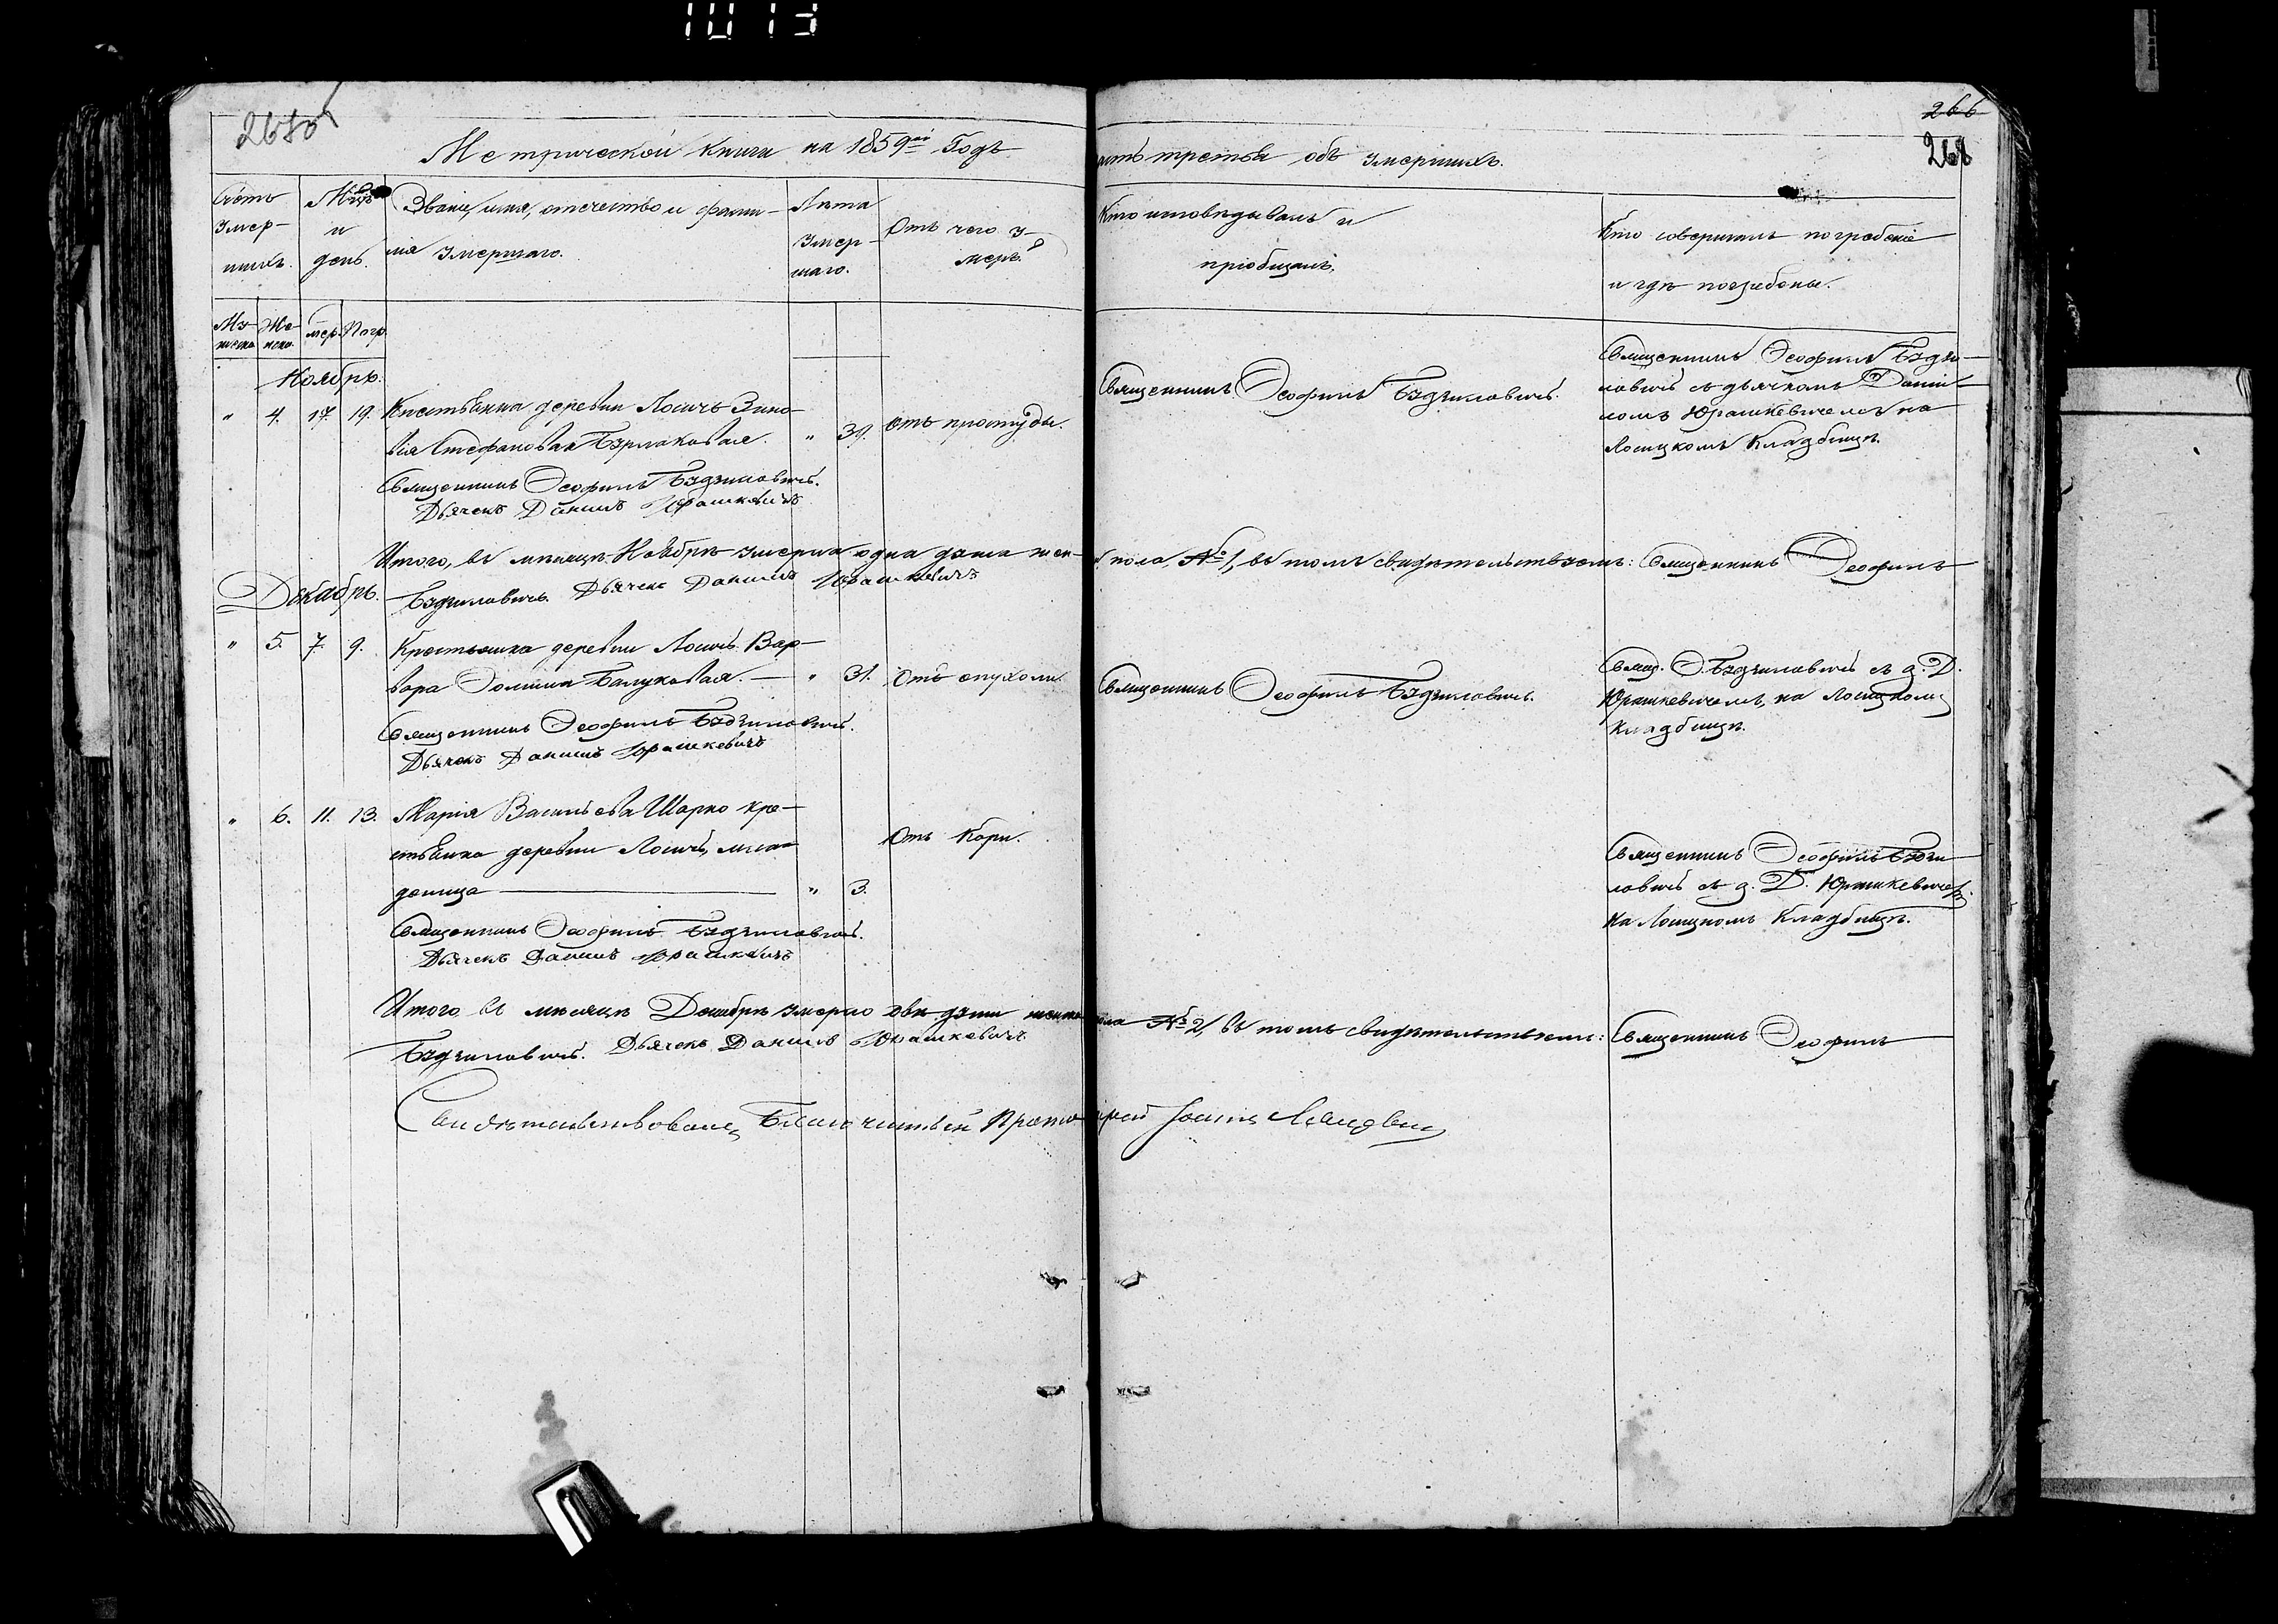 1013
266
268
Метрической книги на 1859й Годъ
часть третья объ умершихъ.
Счетъ умер-шихъ.
Мсцъ и день.
Званіе, имя, отечество и фами-
лія умершаго.
Лѣта умер-шаго.
Отъ чего у-меръ.
Кто исповѣдывалъ и
пріобщалъ.
Кто совершалъ погребеніе
и гдѣ погребены.
Му-жеска
Же-нска
Умер.
Погр.
Ноябрь.
" 4. 17. 19. Крестьянка деревни Лосичъ Зино-
вія Стефановая Бурлаковая. " 39. отъ простуды.
Священникъ Ѳеофилъ Будзиловичъ.
Священникъ Ѳеофилъ Будзи-
ловичъ съ дьячкомъ Дании-
ломъ Юрашкевичемъ на
Лосицкомъ Кладбищѣ.
Священникъ Ѳеофилъ Будзиловичъ.
Дьячекъ Даниилъ Юрашкевичъ
Итого, въ мѣсяцѣ Ноябрѣ умерла одна душа жен- пола № 1, въ томъ свидѣтельствуемъ: Священникъ Ѳеофилъ
Будзиловичъ. Дьячекъ Даниилъ Юрашкевичъ
Декабрь.
" 5. 7. 9. Крестьянка деревни Лосичъ Вар-
вара Ѳомина Балуковая. — " 31. Отъ опухоли.
Священникъ Ѳеофилъ Будзиловичъ.
Свящ. Ѳ. Будзиловичъ съ д. Д.
Юрашкевичемъ, на Лосицкомъ
Кладбищѣ.
Священникъ Ѳеофилъ Будзиловичъ.
Дьячекъ Даниилъ Юрашкевичъ
" 6. 11. 13. Марія Васильева Шарко кре-
стьянка деревни Лосичъ, мла-
деница — " 3.
Отъ Кори.
Священникъ Ѳеофилъ Будзи-
ловичъ съ д. Д. Юрашкевичемъ
на Лосицкомъ Кладбищѣ.
Священникъ Ѳеофилъ Будзиловичъ.
Дьячекъ Даниилъ Юрашкевичъ
Итого въ мѣсяцѣ Декабрѣ умерло двѣ души женска пола № 2, въ томъ свидѣтельствуемъ: Священникъ Ѳеофилъ
Будзиловичъ. Дьячекъ Даниилъ Юрашкевичъ
Свидѣтельствовалъ Благочинный Протоіерей Іоаннъ